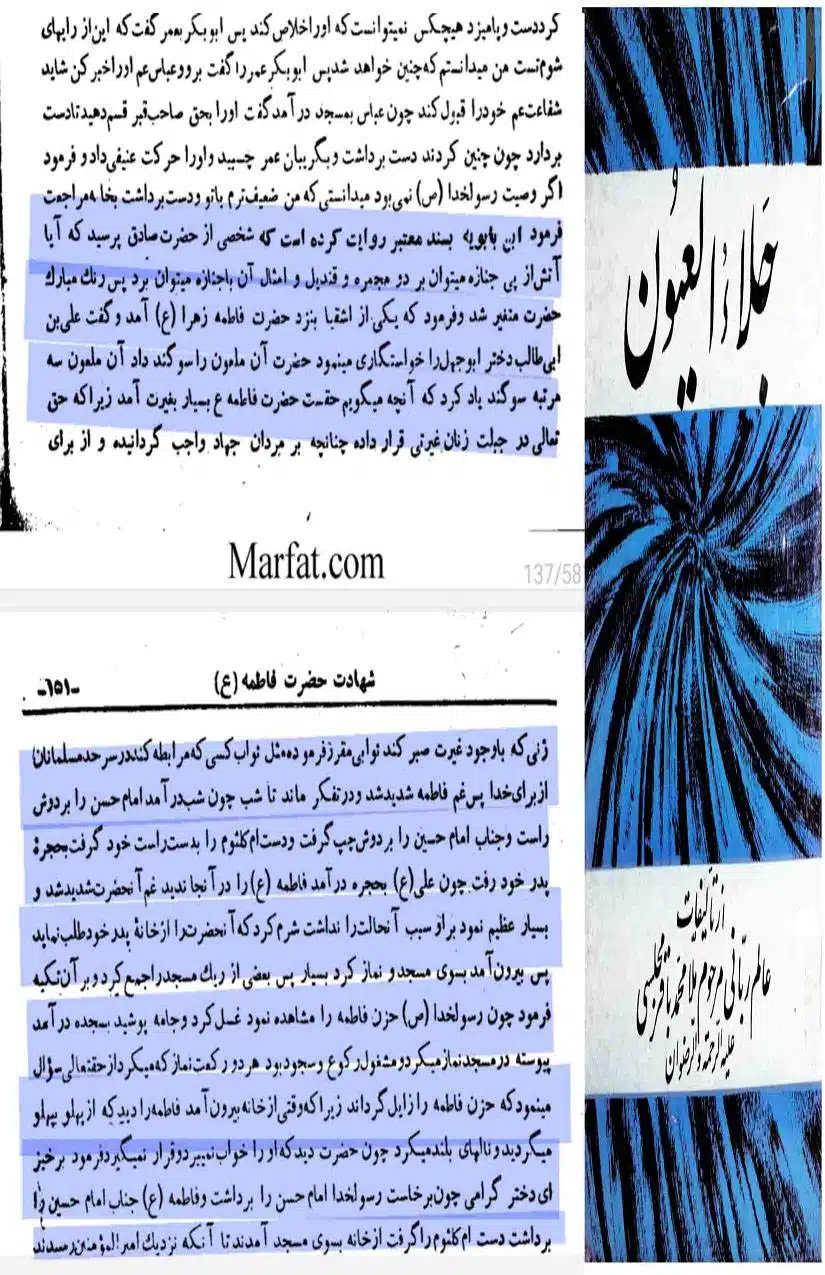 کرد دست و پا میزد هیچکس نمیتوانست که او را خلاص کند پس ابوبکر بعمر گفت که این از رایهای
شوم تست من میدانستم که چنین خواهد شد پس ابوبکر عمر را گفت برو و عباس عم او را خبر کن شاید
شفاعت عم خود را قبول کند چون عباس بمسجد در آمد گفت او را بحق صاحب قبر قسم دهید تا دست
بردارد چون چنین کردند دست برداشت و بگریبان عمر چسبید و او را حرکت عنیفی داد و فرمود
اگر وصیت رسولخدا (ص) نمی بود میدانستی که من ضعیف ترم یا تو و دست برداشت بخانه مراجعت
فرمود ابن بابویه بسند معتبر روایت کرده است که شخصی از حضرت صادق پرسید که آیا
آتش از پی جنازه میتوان برد و مجمره و قندیل و امثال آن با جنازه میتوان برد پس رنك مبارك
حضرت متغیر شد و فرمود که یکی از اشقیا بنزد حضرت فاطمه زهرا (ع) آمد و گفت علی بن
ابی طالب دختر ابوجهل را خواستگاری مینمود حضرت آن ملعون را سوگند داد آن ملعون سه
مرتبه سوگند یاد کرد که آنچه میگویم حقست حضرت فاطمه ع بسیار بغیرت آمد زیرا که حق
تعالی در جبلت زنان غیرتی قرار داده چنانچه بر مردان جهاد واجب گردانیده و از برای
Marfat.com
137/58
شهادت حضرت فاطمه (ع)
-۱۵۱-
زنی که باوجود غیرت صبر کند ثوابی مقرر فرموده مثل ثواب کسی که مرابطه کند در سرحد مسلمانان
از برای خدا پس غم فاطمه شدید شد و در تفکر ماند تا شب چون شب در آمد امام حسن را بر دوش
راست و جناب امام حسین را بر دوش چپ گرفت و دست ام کلثوم را بدست راست خود گرفت بحجرۀ
پدر خود رفت چون علی (ع) بحجره در آمد فاطمه (ع) را در آنجا ندید غم آنحضرت شدید شد و
بسیار عظیم نمود بر از سبب آنحالت را نداشت شرم کرد که آنحضرت را از خانۀ پدر خود طلب نماید
پس بیرون آمد بسوی مسجد و نماز کرد بسیار پس بعضی از ریك مسجد را جمع کرد و بر آن تکیه
فرمود چون رسولخدا (ص) حزن فاطمه را مشاهده نمود غسل کرد و جامه پوشید بسجده در آمد
پیوسته در مسجد نماز میکرد و مشغول رکوع و سجود بود هر دو رکعت نماز که میکرد از حقتعالی سؤال
مینمود که حزن فاطمه را زایل گرداند زیرا که وقتی از خانه بیرون آمد فاطمه را دید که از پهلو بپهلو
میگردید و نالهای بلند میکرد چون حضرت دید که او را خواب نمیبرد و قرار نمیگیرد فرمود برخیز
ای دختر گرامی چون برخاست رسولخدا امام حسن را برداشت و فاطمه (ع) جناب امام حسین را
برداشت دست ام کلثوم را گرفت از خانه بسوی مسجد آمدند تا آنکه نزدیك امیرالمؤمنین رسیدند
جَلاءُ العُیُون
از تألیفات
عالم ربّانی مرحوم ملا محمد باقر مجلسی
علیه الرحمة والرضوان